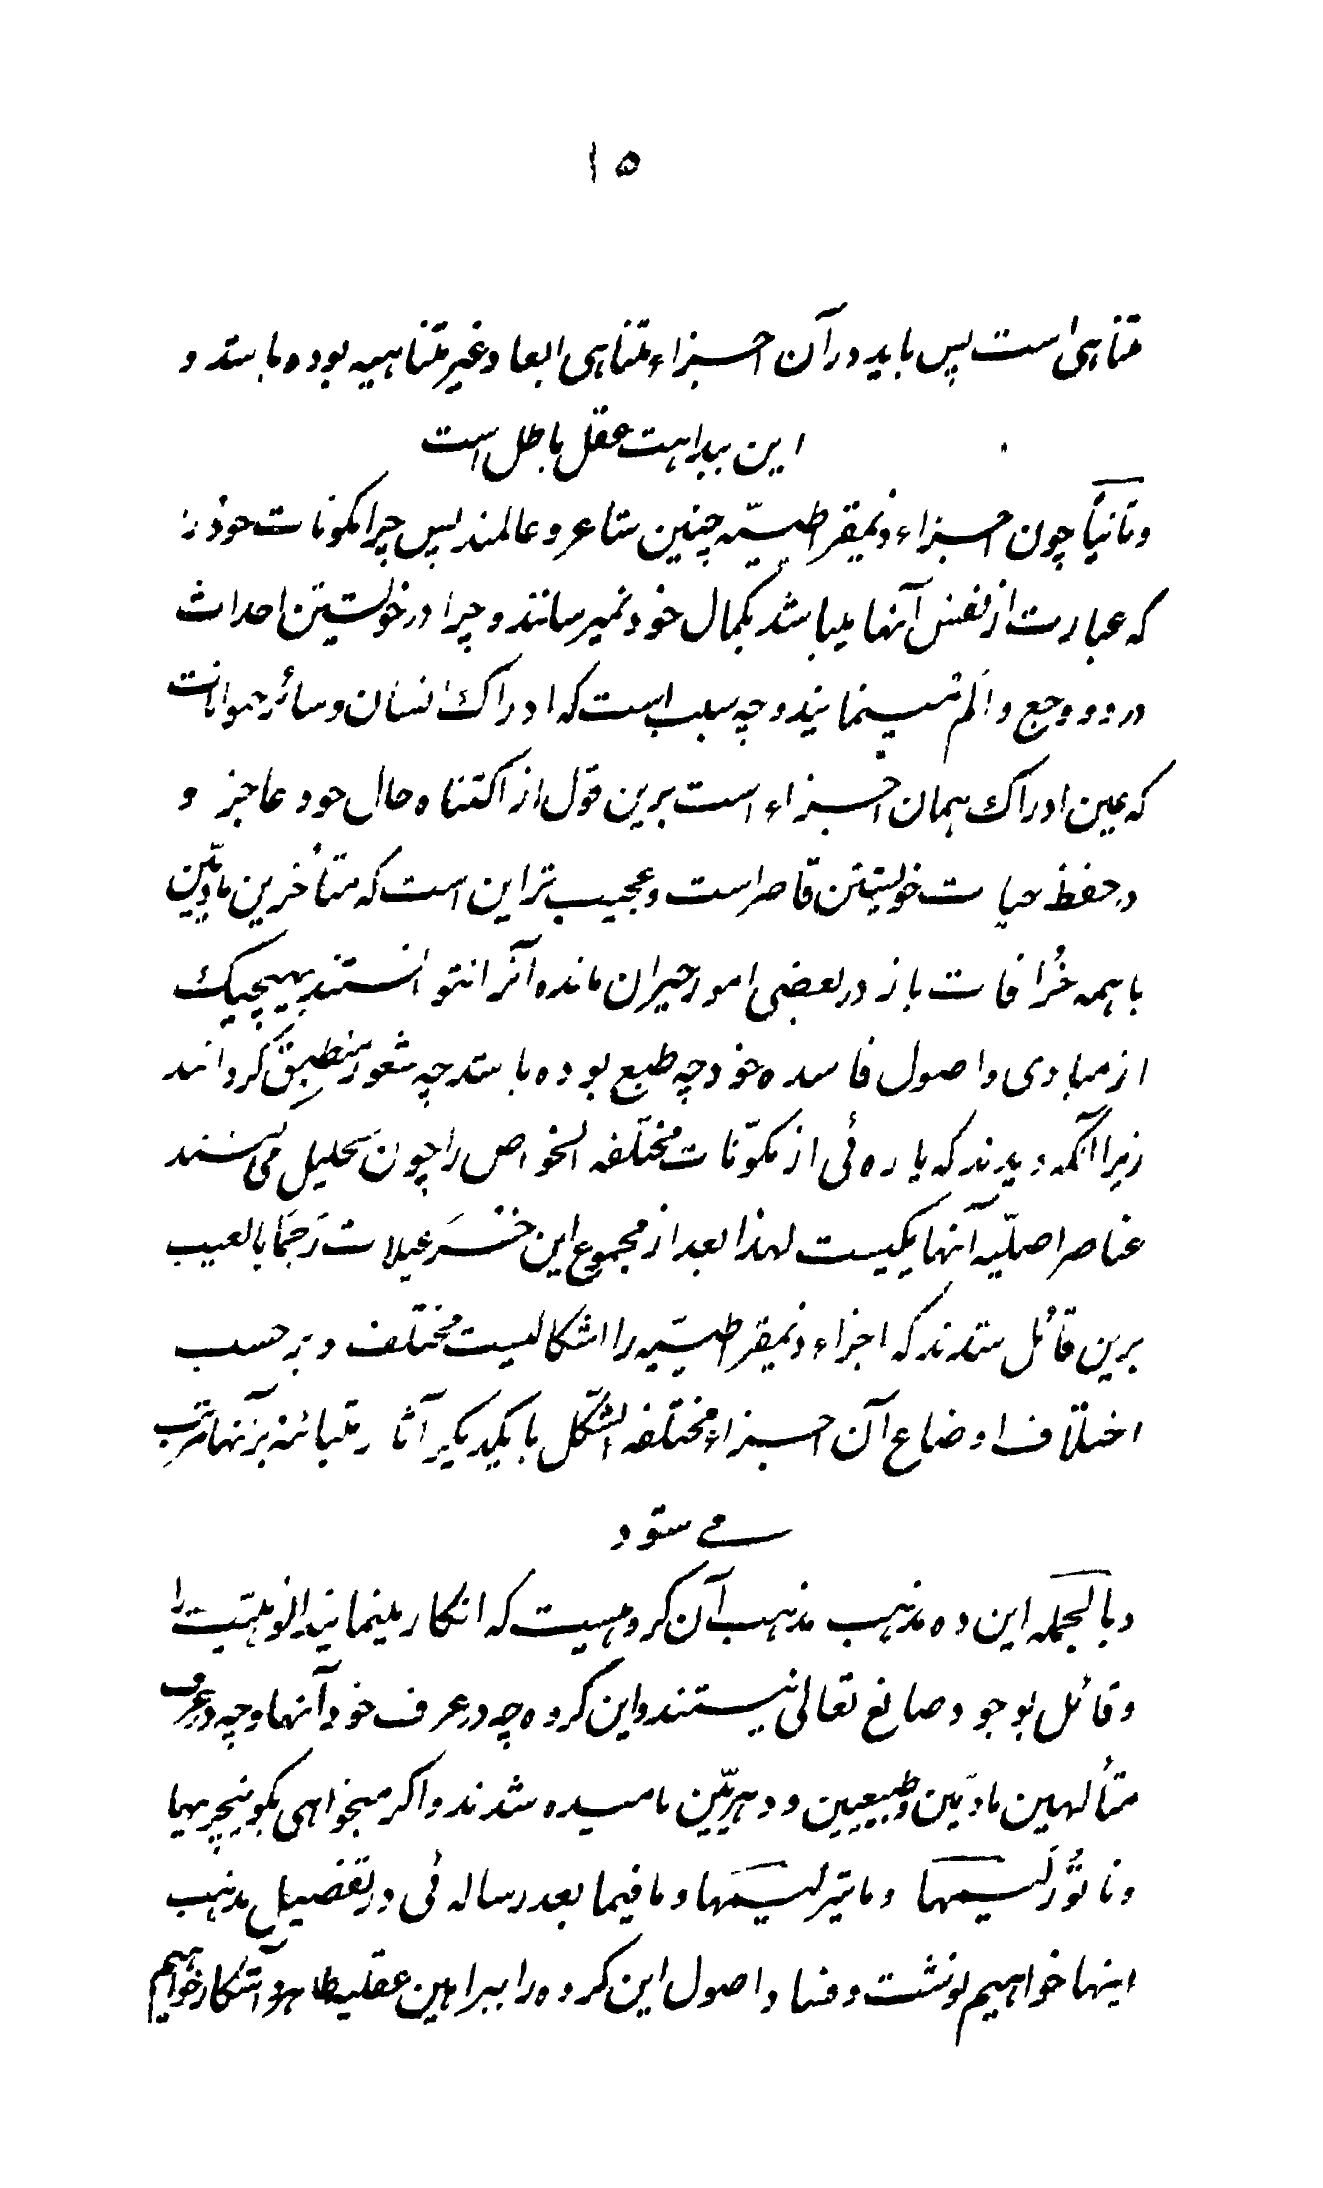 ۱۵
متناهی است پس باید در آن اجزاء متناهی ابعاد غیر متناهیه بوده باشد و
این ببداهت عقل باطل است
و ثانیاً چون اجزاء ذیمقراطیسیّه چنین شاعر و عالمند پس چرا مکونات خود را
که عبارت از نفس آنها میباشد بکمال خود نمیرسانند و چرا در خویشتن احداث
درد و وجع و الم مینمایند و چه سبب است که ادراک انسان و سائر حیوانات
که عین ادراک همان اجزاء است برین قول از اکتناه حال خود عاجز و
در حفظ حیات خویشتن قاصر است و عجیب تر این است که متأخرین مادیّین
با همه خُرافات باز در بعضی امور حیران مانده آنرا نتوانستند بهیچیک
از مبادی و اصول فاسده خود چه طبع بوده باشد چه شعور منطبق گردانند
زیرا آنکه دیدند که پاره ئی از مکوّنات مختلفه الخواص را چون تحلیل می کنند
عناصر اصلیّه آنها یکیست لهذا بعد از مجموع این خُزَعبلات رَجمًا بالغیب
برین قائل شدند که اجزاء ذیمقراطیسیّه را اشکالیست مختلف و بر حسب
اختلاف اوضاع آن اجزاء مختلفه الشّکل با یکدیگر آثار متبائنه بر آنها مترتب
می شود
و بالجمله این ده مذهب مذهب آن گروهیست که انکار مینمایند الوهیّت را
و قائل بوجود صانع تعالی نیستند و این گروه چه در عرف خود آنها و چه در عرف
متألهین مادیّین و طبیعیین و دهریّین نامیده شدند و اگر میخواهی بگو نیچریها
و ناتُورَلیسمها و ماتیرلیسمها و ما فیما بعد رساله ئی در تفصیل مذهب
اینها خواهیم نوشت و فساد اصول این گروه را ببراهین عقلیه ظاهر و آشکار خواهیم